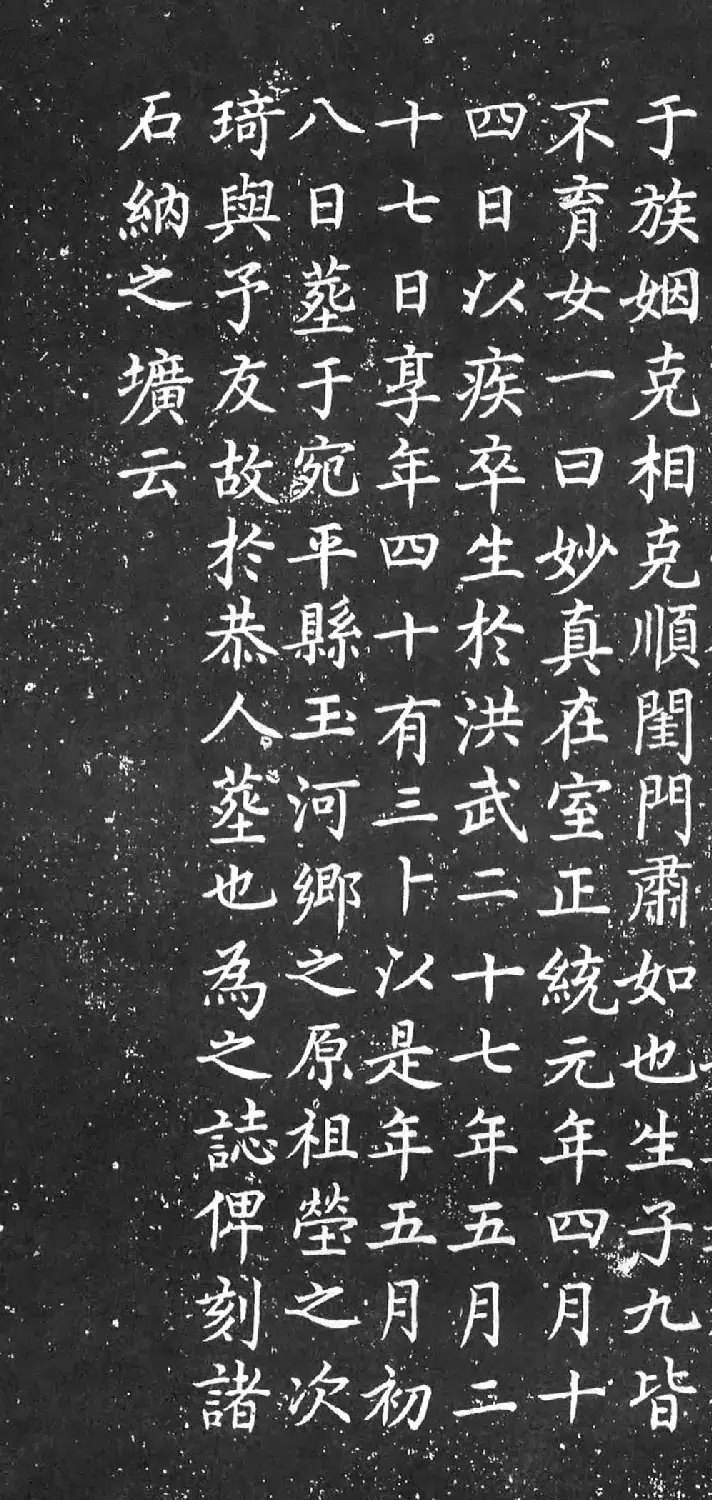 于族姻克相克順閨門肅如也生子九皆
不育女一曰妙真在室正統元年四月十
四日以疾卒生於洪武二十七年五月二
十七日享年四十有三卜以是年五月初
八日塟于宛平縣玉河鄉之原祖塋之次
琦與予友故於恭人塟也為之誌俾刻諸
石納之壙云